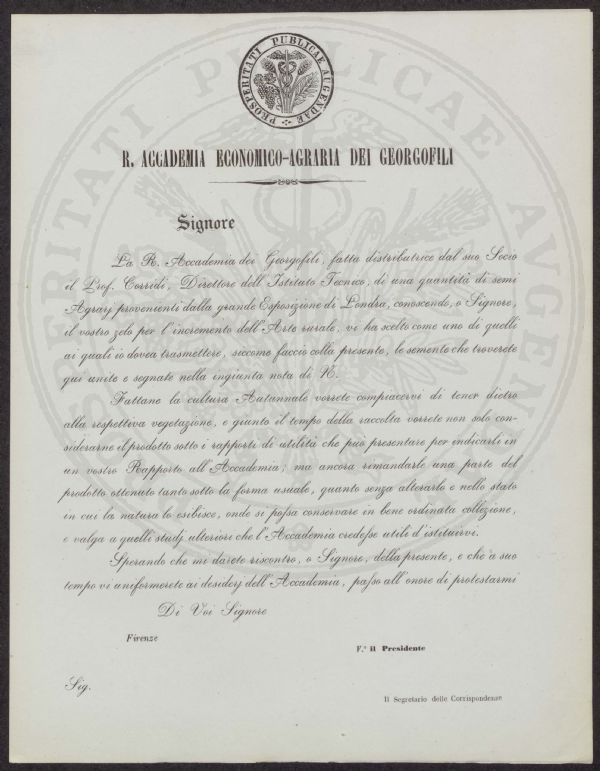 PROSPERITATI PUBLICAE AUGENDAE
R. ACCADEMIA ECONOMICO-AGRARIA DEI GEORGOFILI
Signore
La R. Accademia dei Georgofili, fatta distributrice dal suo Socio
il Prof. Corridi, Direttore dell'Istituto Tecnico, di una quantità di semi
Agrarj provenienti dalla grande Esposizione di Londra, conoscendo, o Signore,
il vostro zelo per l'incremento dell'Arte rurale, vi ha scelto come uno di quelli
ai quali io dovea trasmettere, siccome faccio colla presente, le semente che troverete
qui unite e segnate nella ingiunta nota di N.
Fattane la cultura Autunnale vorrete compiacervi di tener dietro
alla respettiva vegetazione, e giunto il tempo della raccolta vorrete non solo con-
siderarne il prodotto sotto i rapporti di utilità che può presentare per indicarli in
un vostro Rapporto all'Accademia; ma ancora rimandarle una parte del
prodotto ottenuto tanto sotto la forma usuale, quanto senza alterarlo e nello stato
in cui la natura lo esibisce, onde si possa conservare in bene ordinata collezione,
e valga a quelli studj ulteriori che l'Accademia credesse utili d'istituirvi.
Sperando che mi darete riscontro, o Signore, della presente, e che a suo
tempo vi uniformerete ai desiderj dell'Accademia, passo all'onore di protestarmi
Di Voi Signore
Firenze
F.° il Presidente
Sig.
Il Segretario delle Corrispondenze
PROSPERITATI PUBLICAE AUGENDAE